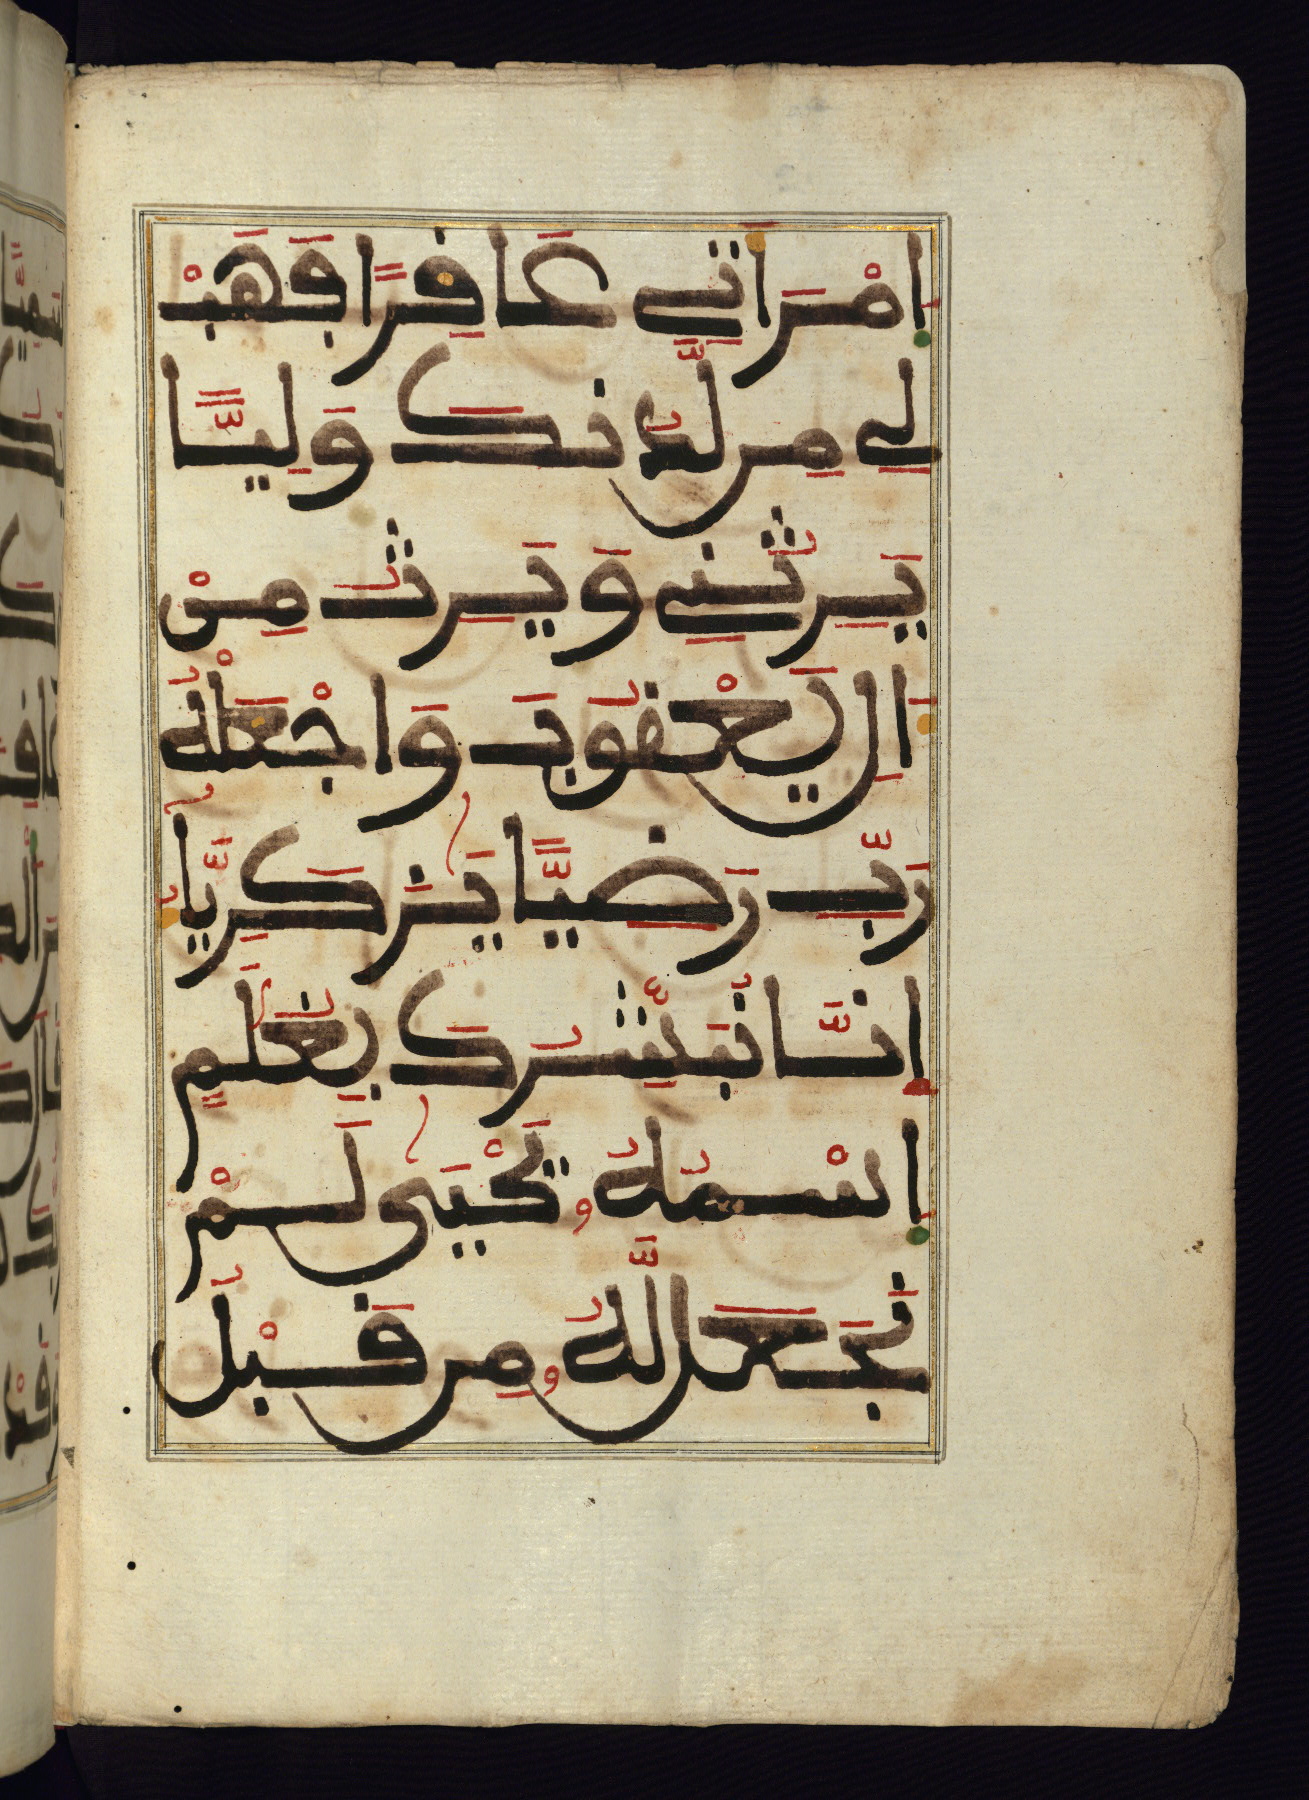 اِمْرَأَتِي عَاقِرًا فَهَبْ
لِي مِن لَّدُنكَ وَلِيًّا
يَرِثُنِي وَيَرِثُ مِنْ
ءَالِ يَعْقُوبَ وَاجْعَلْهُ
رَبِّ رَضِيًّا يَٰزَكَرِيَّآءُ
اِنَّا نُبَشِّرُكَ بِغُلَٰمٍ
اِسْمُهُۥ يَحْيَىٰ لَمْ
نَجْعَل لَّهُۥ مِن قَبْلُ